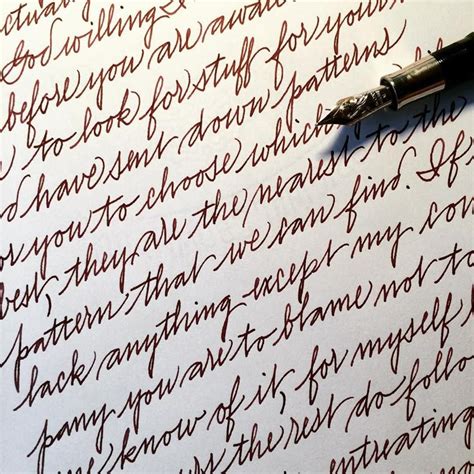 God willing I
before you are
to look for stuff for your
have sent down patterns
or you to choose which
best, they are the nearest to the
pattern that we can find. If
lack anything except my com
pany you are to blame not to
me know of it, for myself
the rest do follo
entreating